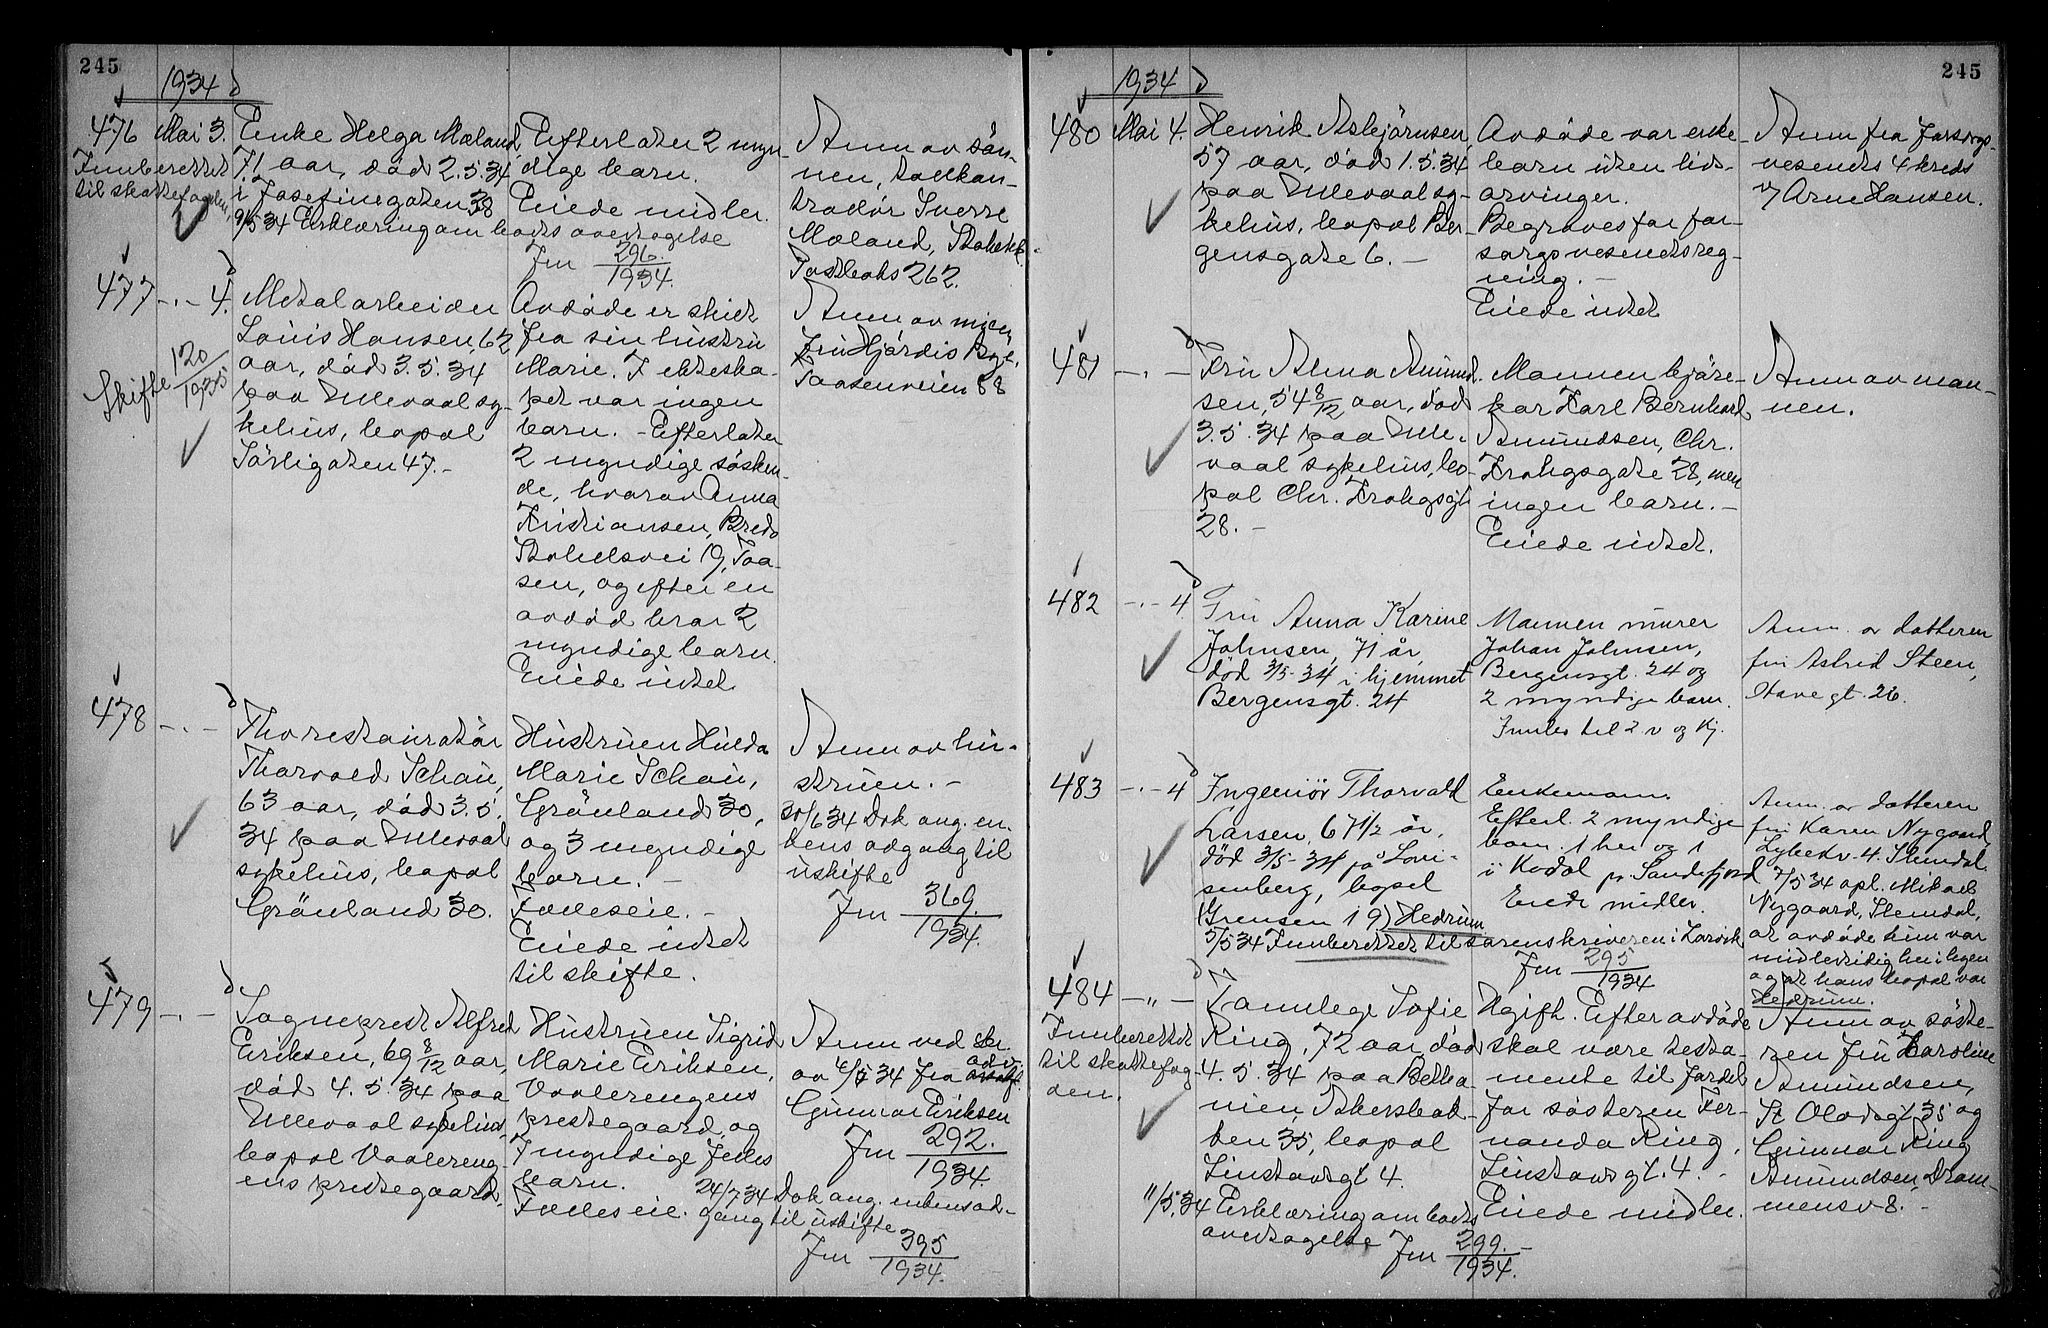 245
1934
476
Mai 3.
Innberettet
til skattefogden,
Enke Helga Mæland,
71 aar, död 2.5.34
i Josefinegaten 38
9/5 34 Erklæring om boets overtagelse
Efterlater 2 myn-
dige barn.
Eiede midler.
Jnr 296.
1934.
Anm av søn-
nen, tolkon-
trolör Sverre
Mæland, Stokke
Postboks 262.
477 -.- 4.
Skifte 120
1935
Metalarbeider
Louis Hansen, 62
aar, död 3.5.34
paa Ullevaal sy-
kehus, bopæl
Sörligaten 47.-
Avdöde er skilt
fra sin hustru
Marie. I ekteska-
pet var ingen
barn. - Efterlater
2 myndige søsken-
de, hvorav Anna
Kristiansen, Bredo
Stabells vei 19, Taa-
sen, og efter en
avdöd bror 2
myndige barn.
Eiede intet
Anm av niecen
Fru Hjördis Bye,
Taasenveien 88
478 -.-
Fhv restauratör
Thorvald Schou,
63 aar, död 3.5.
34 paa Ullevaal
sykehus, bopæl
Grönland 30.
Hustruen Hulda
Marie Schou,
Grönland 30,
og 3 myndige
barn. -
Fælleseie. -
Eiede intet
til skifte.
Anm av hu-
struen. -
20/6 34 Dok ang. en-
kens adgang til
uskifte
Jnr 369.
1934.
479 -.-
Sogneprest Alfred
Eriksen, 69 8/12 aar,
död 4.5.34 paa
Ullevaal sykehus,
bopæl Vaalereng-
ens prestegaard.
Hustruen Sigrid
Marie Eriksen,
Vaalerengens
prestegaard, og
7 myndige fælles
barn.
Fælleseie.
Anm ved skr.
av 4/5 34 fra adv
Gunnar Eriksen
Jnr 292.
1934.
24/7 34 Dok ang. enkens ad-
gang til uskifte
Jnr 395
1934.
245
1934
480 Mai 4.
Henrik Asbjörnsen,
57 aar, död 1.5.34
paa Ullevaal sy-
kehus, bopæl Ber-
gensgate 6. -
Avdöde var enke-
barn uten livs-
arvinger.
Begraves for for-
sorgsvesenets reg-
ning. -
Eiede intet
Anm fra Forsorgs-
vesenets 4 kreds
v/ Arne Hansen.
481 -.-
Fru Alma Amund-
sen, 54 8/12 aar, död
3.5.34 paa Ulle-
vaal sykehus, bo-
pæl Chr. Krohgsgt
28. -
Mannen kjöre-
kar Karl Bernhard
Amundsen, Chr.
Krohgsgate 28, men
ingen barn. -
Eiede intet.
Anm av man-
nen.
482 -.- 4.
Fru Anna Karine
Johnsen, 71 år,
död 3/5-34 i hjemmet
Bergensgt. 24
Mannen murer
Johan Johnsen,
Bergensgt. 24 og
2 myndige barn.
Anm. av datteren
fru Astrid Steen,
Stavegt. 26.
483 -.- 4
Ingeniör Thorvald
Larsen, 67 1/2 år,
död 3/5-34 på Lovi-
senberg, bopæl
(Grensen 19) Hedrum
5/5 34 Innberettet til sorenskriveren i Larvik
Enkemann.
Efterl. 2 myndige
barn. 1 her og 1
i Kodal pr. Sandefjord
Eiede midler.
Jnr 295
1934
Anm. av datteren
fru Karen Nygaard,
Lybekkv. 4. Slemdal.
7/5 34 opl. Mikael
Nygaard, Slemdal,
at avdöde kun var
midlertidig her i byen
og at hans bopæl var
Hedrum.
484 -"-
Innberettet
til skattefog-
den.
Tannlege Sofie
Ring, 72 aar död
4.5.34 paa Betha-
nien, Akersbak-
ken 35, bopæl
Linstowsgt 4.
11/5.34 Erklæring om boets
overtagelse Jnr 299.
1934.
Ugift. Efter avdöde
skal være testa-
mente til fordel
for søsteren Fer-
nanda Ring,
Linstowsgt. 4. -
Eiede midler.
Anm av søste-
ren fru Karoline
Amundsen,
St Olavsgt 35 og
Gunnar Ring
Amundsen, Dram-
mensv 8. -